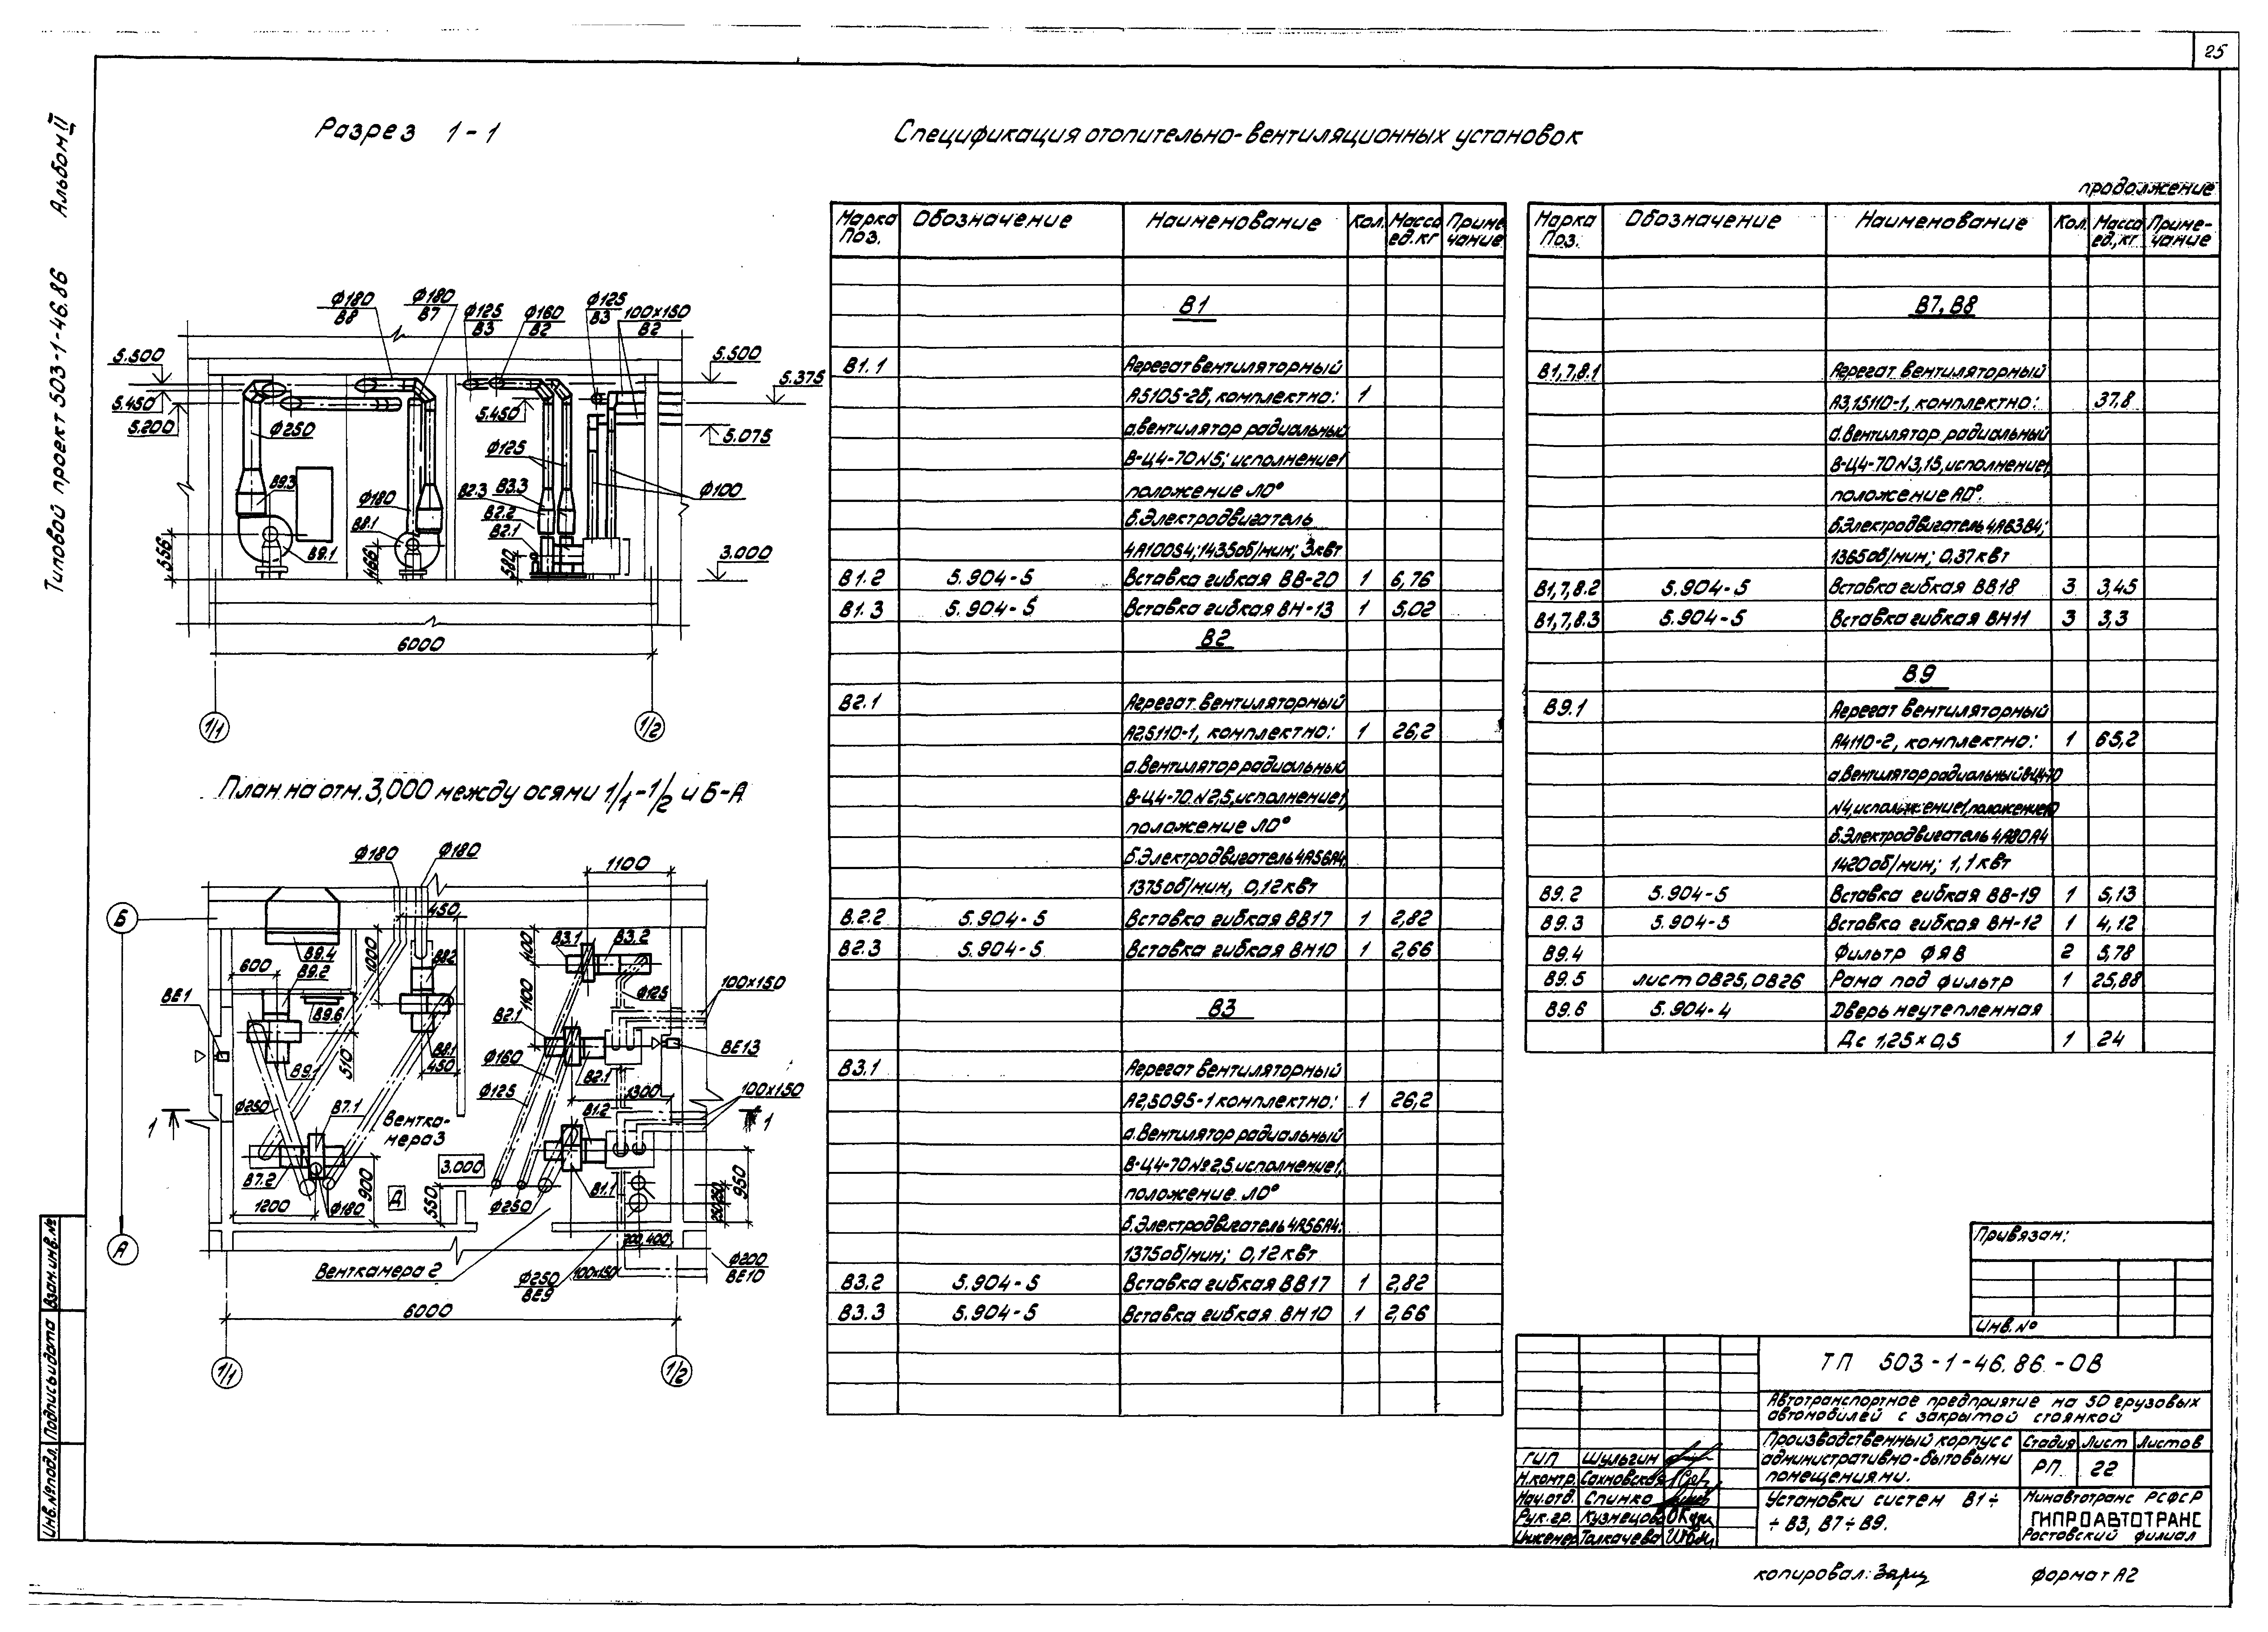 25
Типовой проект 503-1-46.86 Альбом II
Разрез 1-1
ф180
В8
ф180
В7
ф125
В3
ф160
В2
ф125
В3
100х150
В2
5.500
5.450
5.200
ф250
В9.3
В9.1
556
ф180
В8.1
466
5.450
ф125
В2.3
В3.3
В2.2
В2.1
580
ф100
5.500
5.375
5.075
3.000
6000
1/1
1/2
План на отм. 3,000 между осями 1/1-1/2 и Б-А
ф180
ф180
1100
Б
А
450
В9.4
В9.2
600
1000
400
В3.1
В3.2
100х150
ВЕ1
В9.6
1100
ф125
В2.1
ВЕ13
510
В9.1
В8.1
450
ф160
В2.1
1300
ф125
100х150
ф250
В7.1
Вентка-
мера 3
В1.2
1
1
3.000
В7.2
900
Д
550
950
1200
ф180
ф250
В1.1
200 400
Венткамера 2
ф250
ВЕ9
100х150
ф200
ВЕ10
6000
1/1
1/2
Спецификация отопительно-вентиляционных установок
продолжение
Марка Поз. Обозначение Наименование Кол. Масса ед.кг Приме чание
В1
В1.1 Агрегат вентиляторный
А5105-2б, комплектно: 1
а.вентилятор радиальный
В-Ц4-70 N5; исполнение1
положение Л0°
б.Электродвигатель
4А100S4; 1435об/мин; 3квт
В1.2 5.904-5 Вставка гибкая ВВ-20 1 6,76
В1.3 5.904-5 Вставка гибкая ВН-13 1 5,02
В2
В2.1 Агрегат вентиляторный
А2,5110-1, комплектно: 1 26,2
а.Вентилятор радиальны
В-Ц4-70.N2,5, исполнение1,
положение Л0°
б.Электродвигатель 4А56А4,
1375об/мин, 0,12квт
В.2.2 5.904-5 Вставка гибкая ВВ17 1 2,82
В2.3 5.904-5 Вставка гибкая ВН10 1 2,66
В3
В3.1 Агрегат вентиляторный
А2,5095-1 комплектно: 1 26,2
а.Вентилятор радиальный
В-Ц4-70№2,5 исполнение1,
положение Л0°
б.Электродвигатель 4А56А4:
1375об/мин; 0,12квт
В3.2 5.904-5 Вставка гибкая ВВ17 1 2,82
В3.3 5.904-5 Вставка гибкая ВН10 1 2,66
Марка Поз. Обозначение Наименование Кол. Масса ед.,кг Приме- чание
В7, В8
В1,7,8.1 Агрегат вентиляторный
А3,15110-1, комплектно: 37.8
а.Вентилятор радиальный
В-Ц4-70N3,15, исполнение1,
положение П0°.
б.Электродвигатель 4А63В4;
1365об/мин; 0,37квт
В1,7,8.2 5.904-5 Вставка гибкая ВВ18 3 3,45
В1,7,8.3 5.904-5 Вставка гибкая ВН11 3 3,3
В9
В9.1 Агрегат вентиляторный
А4110-2, комплектно: 1 65,2
а.Вентилятор радиальный В-Ц4-70
N4, исполнение1, положение
б.Электродвигатель 4А80А4
1420об/мин; 1,1квт
В9.2 5.904-5 Вставка гибкая ВВ-19 1 5,13
В9.3 5.904-5 Вставка гибкая ВН-12 1 4,12
В9.4 Фильтр ФЯВ 2 5,78
В9.5 лист ОВ25,ОВ26 Рама под фильтр 1 25,88
В9.6 5.904-4 Дверь неутепленная
Дс 1,25х0,5 1 24
Привязан:
Инв.№
ТП 503-1-46.86.-ОВ
Автотранспортное предприятие на 50 грузовых
автомобилей с закрытой стоянкой
Производственный корпус с
административно-бытовыми
помещениями.
Стадия Лист Листов
РП. 22
Установки систем В1÷
÷В3, В7÷В9.
Минавтотранс РСФСР
ГИПРОАВТОТРАНС
Ростовский филиал
ГИП Шульгин
Н.контр. Сахновская
Нач.отд. Спинко
Рук.гр. Кузнецова
Инженер Толкачева
копировал:
формат А2
Инв.№подл. Подпись и дата Взам.инв.№